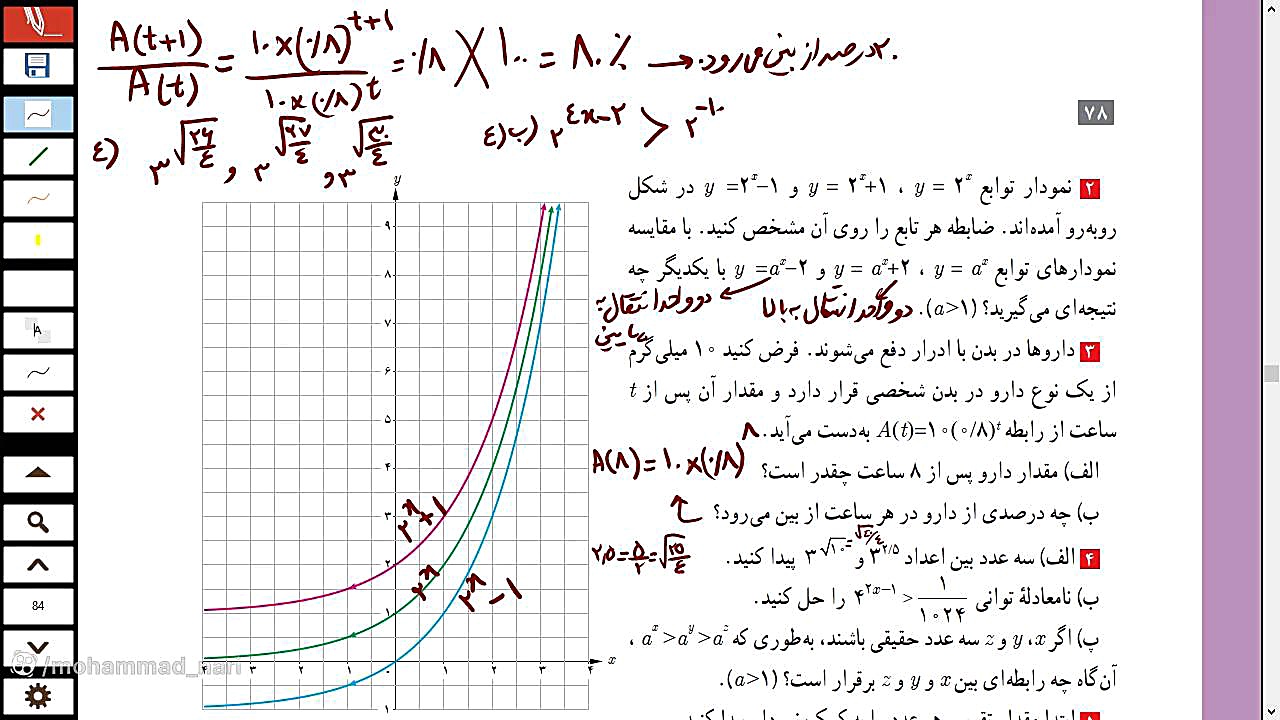 A(t+1) / A(t) = ۱۰×(۰/۸)^t+۱ / ۱۰×(۰/۸)^t = ۰/۸ × ۱۰۰ = ۸۰٪ → ۲۰ درصد از بین می‌رود.
۴) ۳^√۲۶/۴ , ۳^√۲۷/۴ , ۳^√۳۰/۴
۴ب) ۲^۴x−۲ > ۲^−۱۰
۷۸
۲ نمودار توابع y = ۲^x ، y = ۲^x+۱ و y =۲^x−۱ در شکل
روبه‌رو آمده‌اند. ضابطه هر تابع را روی آن مشخص کنید. با مقایسه
نمودارهای توابع y = a^x ، y = a^x+۲ و y =a^x−۲ با یکدیگر چه
نتیجه‌ای می‌گیرید؟ (a>۱).
دو واحد انتقال به بالا
دو واحد انتقال به پایین
۳ داروها در بدن با ادرار دفع می‌شوند. فرض کنید ۱۰ میلی‌گرم
از یک نوع دارو در بدن شخصی قرار دارد و مقدار آن پس از t
ساعت از رابطه A(t)=۱۰(۰/۸)^t به‌دست می‌آید.
الف) مقدار دارو پس از ۸ ساعت چقدر است؟
A(۸) = ۱۰×(۰/۸)^۸
ب) چه درصدی از دارو در هر ساعت از بین می‌رود؟
۴ الف) سه عدد بین اعداد ۳^۲/۵ و ۳^√۱۰ پیدا کنید.
=√۴۰/۴
۲,۵=۵/۲=√۲۵/۴
ب) نامعادلهٔ توانی ۴^۲x−۱ > ۱/۱۰۲۴ را حل کنید.
پ) اگر x، y و z سه عدد حقیقی باشند، به‌طوری که a^x > a^y > a^z ،
آن‌گاه چه رابطه‌ای بین x و y و z برقرار است؟ (a>۱).
y
۹
۸
۷
۶
۵
۴
۳
۲
۱
۴ ۳ ۲ ۱ ۱ ۲ ۳ ۴ x
۱
۲^x+۱
۲^x
۲^x−۱
A
84
/mohammad_nari